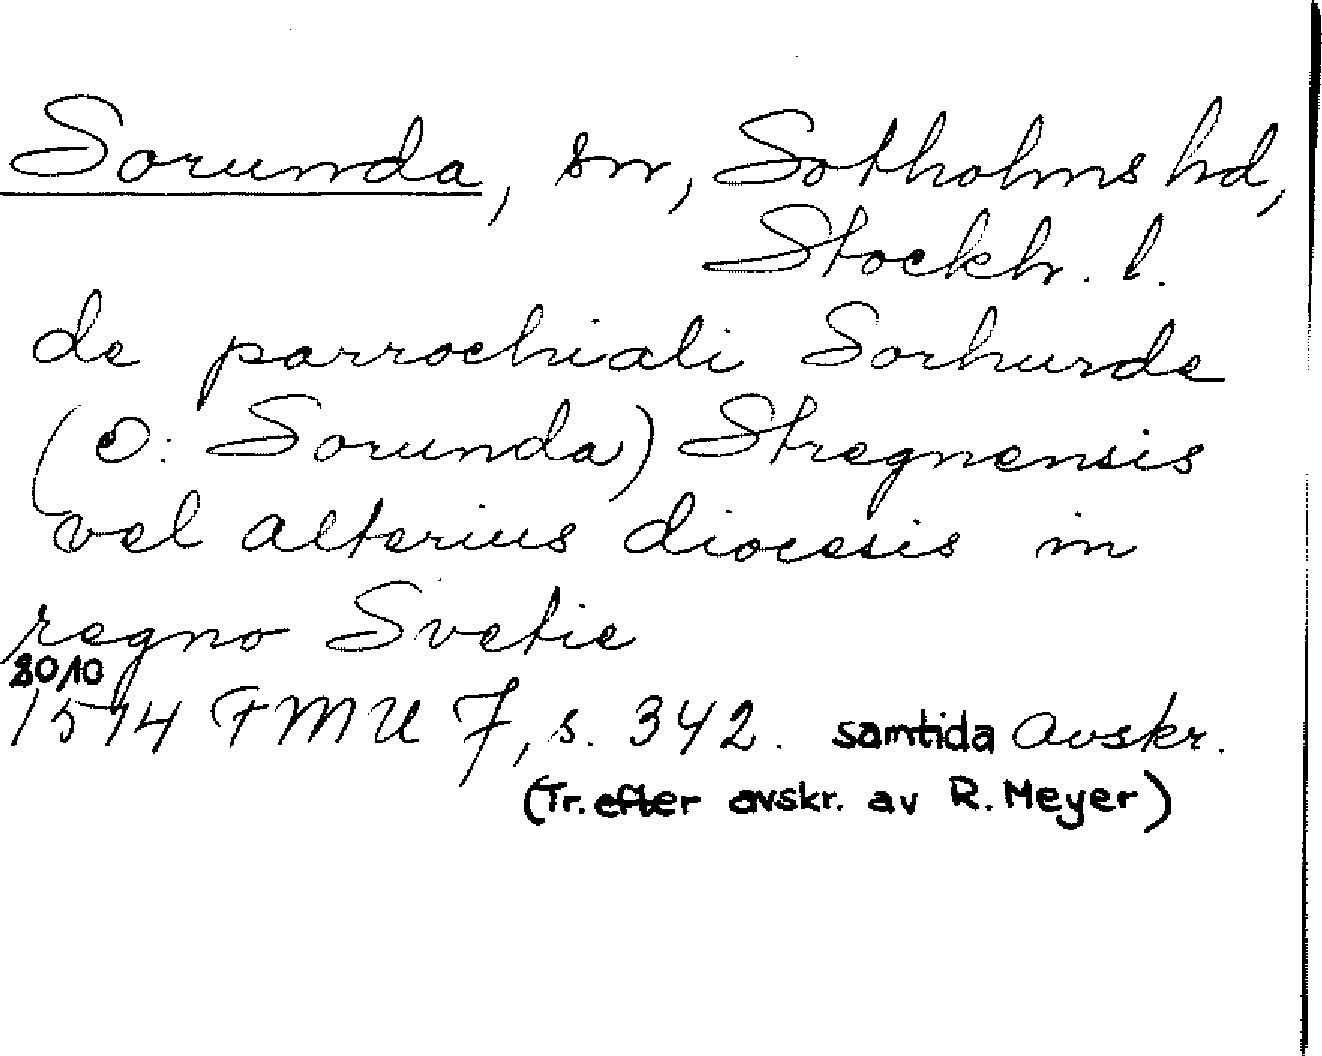 Sorunda, sn, Sotholms hd,
Stockh. l.
de parrochiali Sorhurde
(ɔ: Sorunda) Stregnensis
vel alterius diocesis in
regno Svetie
20/10
1514 FMU 7, s. 342. samtida avskr.
(Tr. efter avskr. av R. Meyer)